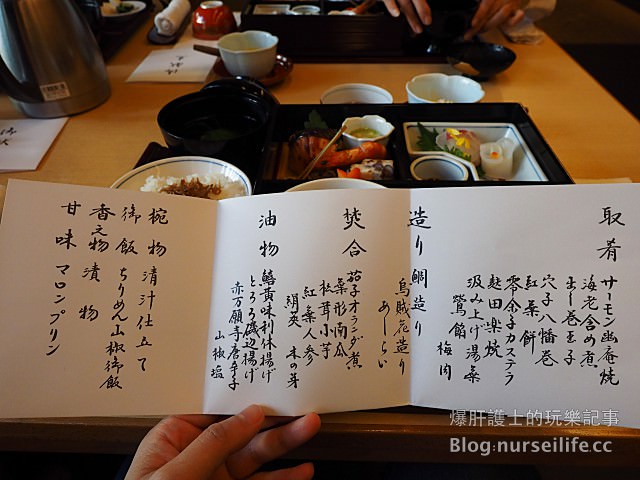 取肴
サーモン幽庵焼
海老含め煮
出し巻玉子
穴子八幡巻
紅葉餅
零余子カステラ
麩田楽焼
汲み上げ湯葉
鶯餡 梅肉
造り 鯛造り
烏賊花造り
あしらい
焚合
茄子オランダ煮
葉形南瓜
松茸小芋
紅葉人参
絹莢 木の芽
油物
鱚黄味利休揚げ
とろろ磯辺揚げ
赤万願寺唐辛子
山椒塩
椀物 清汁仕立て
御飯 ちりめん山椒御飯
香之物 漬物
甘味 マロンプリン
爆肝護士的玩樂記事
Blog:nurseilife.cc